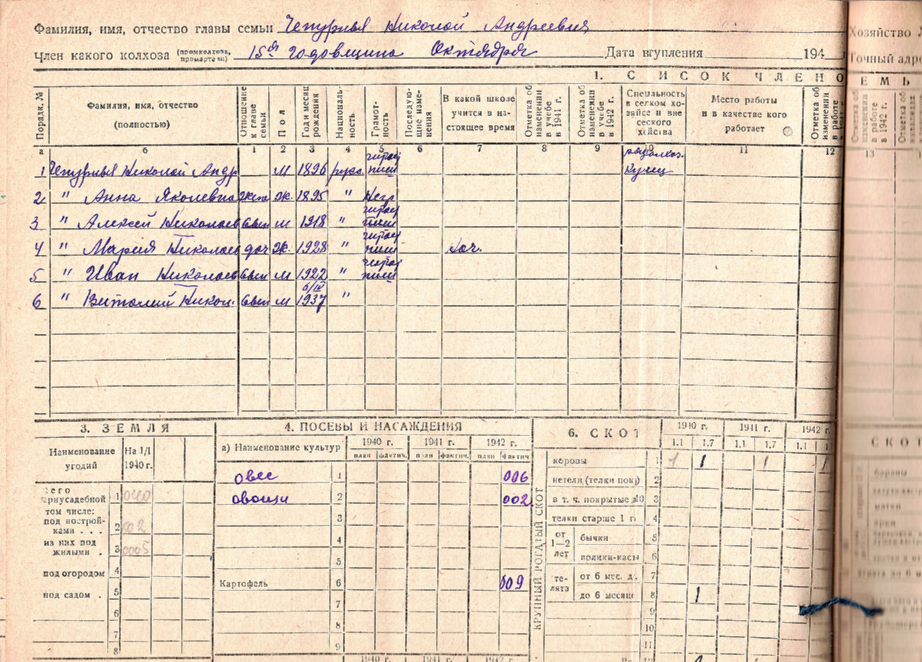 Фамилия, имя, отчество главы семьи Чепурных Николай Андреевич
Член какого колхоза (промколхоза, промартели) 15ая годовщина Октября Дата вступления 194
1. СПИСОК ЧЛЕНО
Порядк. №
Фамилия, имя, отчество (полностью)
Отношение к главе семьи
Пол
Год и месяц рождения
Националь-ность
Грамот-ность
Последую-щие изме-нения
В какой школе учится в на-стоящее время
Отметка об изменении в учебе в 1941 г.
Отметка об изменении в учебе в 1942 г.
Специальность в селком хо-зяйсе и вне сеского хозяйства
Место работы и в качестве кого работает
Отметка об изменении в работе
а б 1 2 3 4 5 6 7 8 9 10 11 12 13
1 Чепурных Николай Андр м 1896 русс. Кузнец
2 " Анна Яковлевна жена ж. 1895 " Негр
3 " Алексей Николаев сын м 1918 "
4 " Мария Николаев доч ж. 1928 "
5 " Иван Николаев сын м 1922 "
6 " Виталий Никол. сын м 1937 "
3. ЗЕМЛЯ
Наименование угодий На 1/I 1940 г.
приусадебной 1
том числе:
под построй-ками . . . 2
из них под жилыми . 3
4
под огородом 5
под садом . 6
7
8
4. ПОСЕВЫ И НАСАЖДЕНИЯ
а) Наименование культур 1940 г. 1941 г. 1942 г.
план фактич. план фактич. план фактич.
овес 1 006
овощи 2 002
3
4
5
Картофель 6 009
7
8
9
1940 г. 1941 г. 1942 г.
6. СКОТ 1940 г. 1941 г. 1942 г.
1.1 1.7 1.1 1.7 1.1
КРУПНЫЙ РОГАТЫЙ СКОТ
коровы 1 1 1 1 1
нетели (телки покр) 2
в т. ч. покрытые 3
телки старше 1 г 4
от 1—2 лет бычки 5
волики-касы 6
те-лята от 6 мес. д. 7
до 6 месяц 8 1
9
10
11
Хозяйство
Точный адре
ЕМЬ
СКОТ